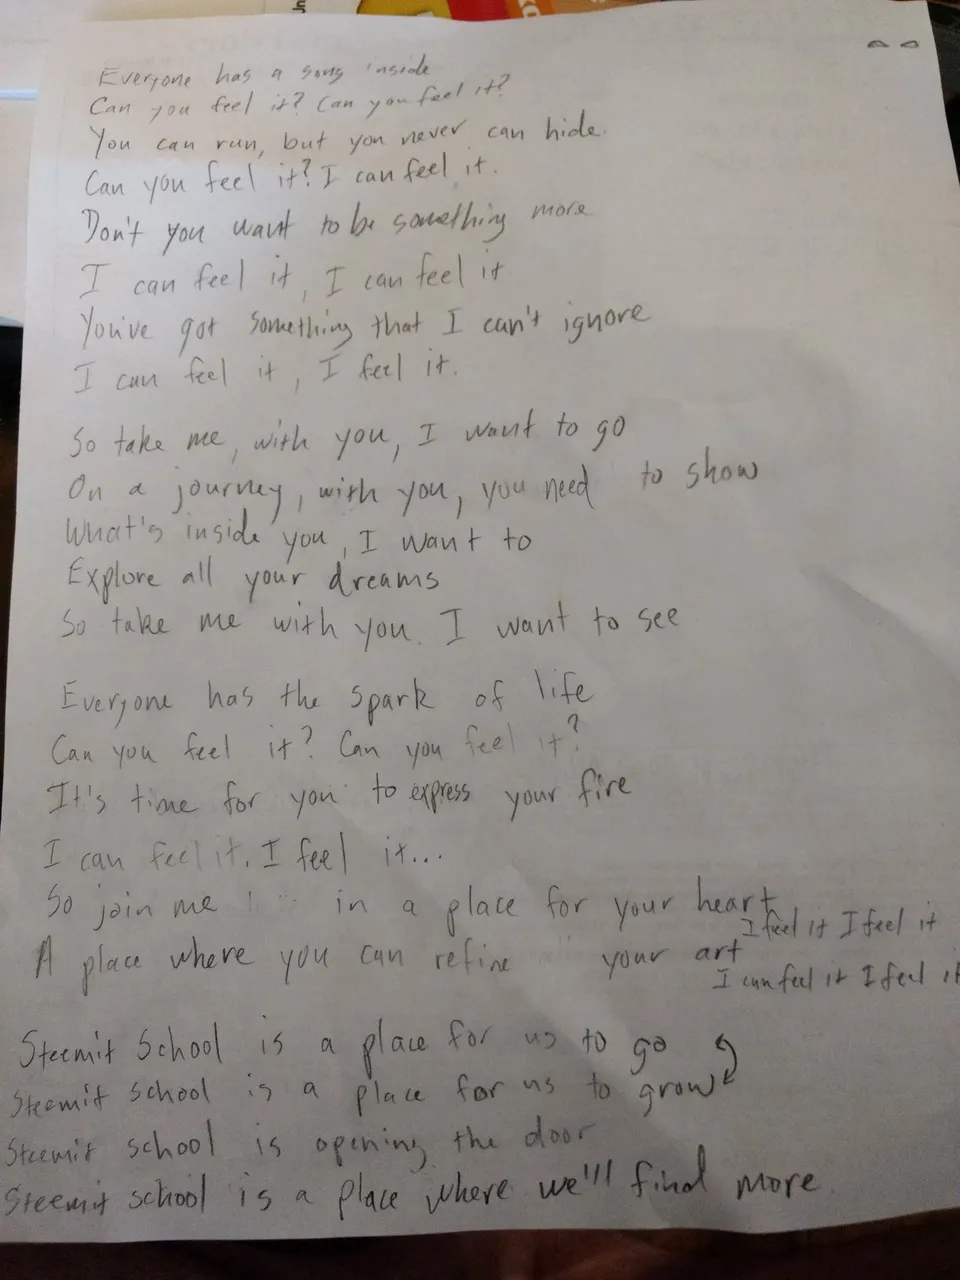 Everyone has a song inside
Can you feel it? Can you feel it?
You can run, but you never can hide.
Can you feel it? I can feel it.
Don't you want to be something more
I can feel it, I can feel it
You've got something that I can't ignore
I can feel it, I feel it.
So take me, with you, I want to go
On a journey, with you, you need to show
What's inside you, I want to
Explore all your dreams
So take me with you. I want to see
Everyone has the spark of life
Can you feel it? Can you feel it?
It's time for you to express your fire
I can feel it. I feel it...
So join me in a place for your heart
I feel it I feel it
A place where you can refine your art
I can feel it I feel it
Steemit School is a place for us to go
Steemit school is a place for us to grow
Steemit school is opening the door
Steemit school is a place where we'll find more